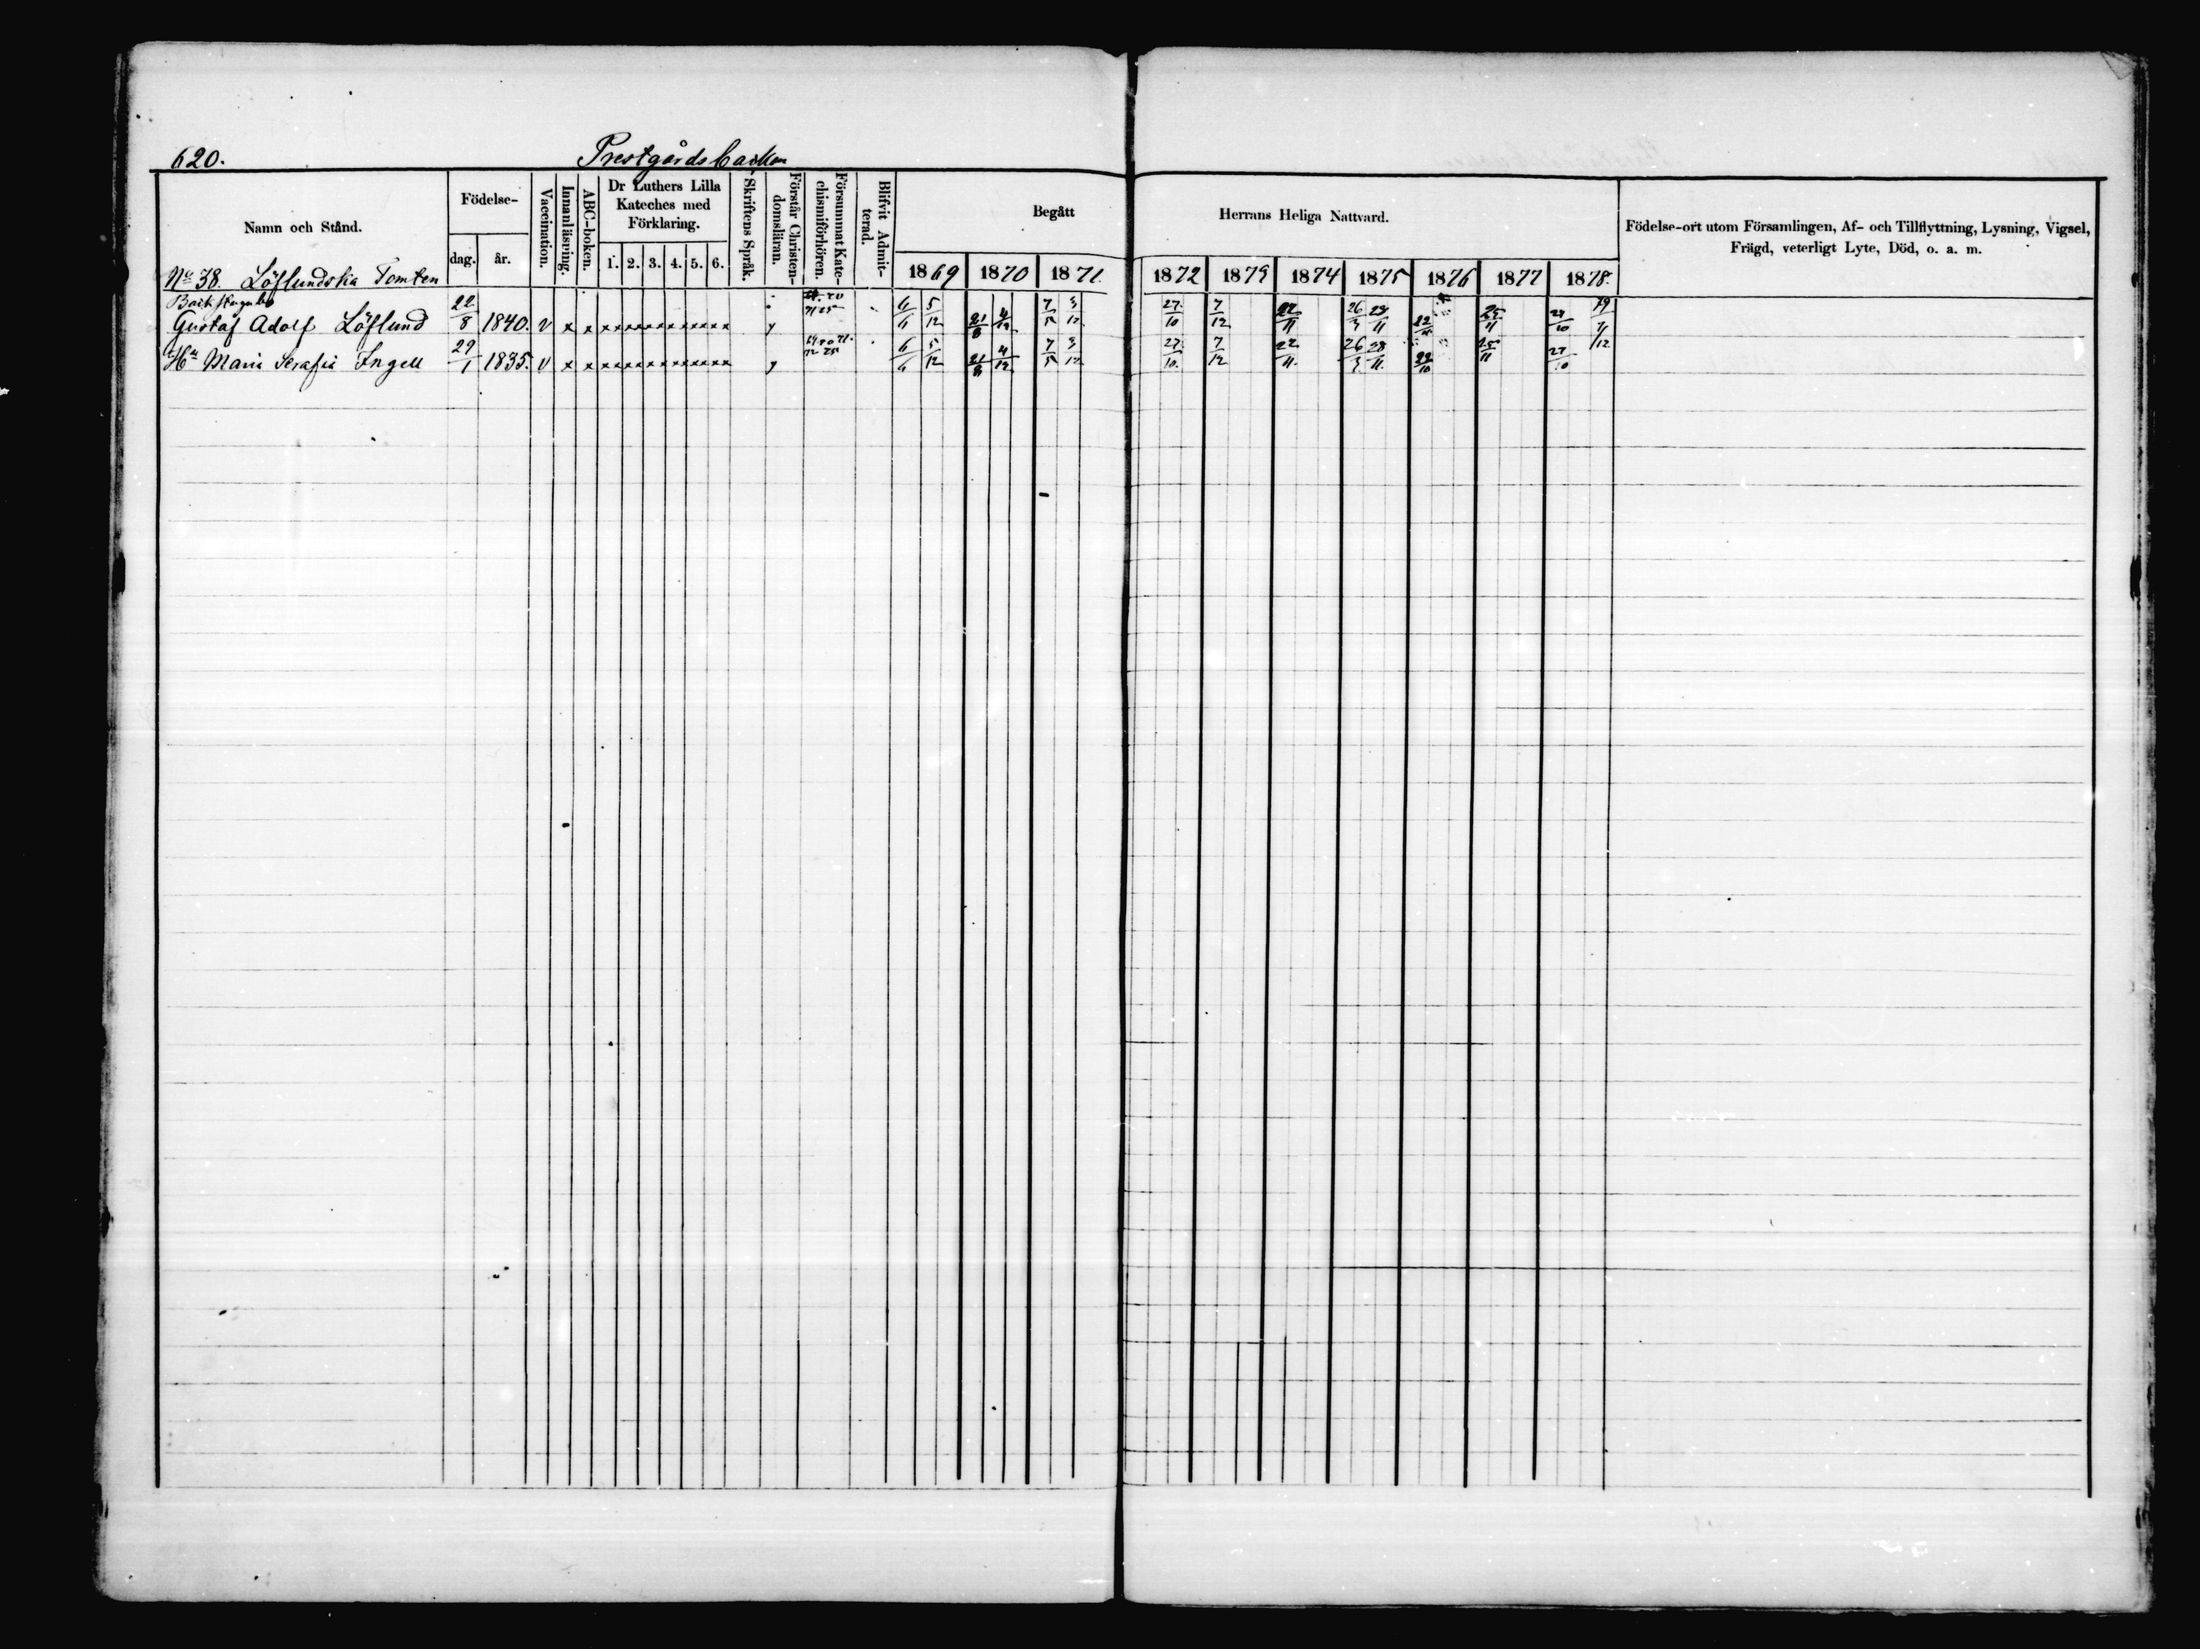 620. Prestgårdsbacken
Namn och Stånd.
Födelse-
dag. år.
Vaccination.
Innanläsning.
ABC-boken.
Dr Luthers Lilla
Kateches med
Förklaring.
1. 2. 3. 4. 5. 6.
Skriftens Språk.
Förstår Christen-
domsläran.
Försummat Kate-
chismiförhören.
Blifvit Admit-
terad.
Begått Herrans Heliga Nattvard.
1869 1870 1871. 1872 1873 1874 1875 1876 1877 1878.
Födelse-ort utom Församlingen, Af- och Tillflyttning, Lysning, Vigsel,
Frägd, veterligt Lyte, Död, o. a. m.
No 38. Löflundska Tomten
Gustaf Adolf Löflund 22/8 1840. v x x x x x x x x x x x x x x y 6/6 5/12 21/8 4/12 7/5 3/12 27/10 7/12 22/11 26/3 28/11 22/10 25/11 27/10
Hu Maria Serafia Ingell 29/1 1835. v x x x x x x x x x x x x x x y 6/6 5/12 21/8 4/12 7/5 3/12 27/10. 7/12 22/11. 26/3 28/11. 22/10 25/11 27/10